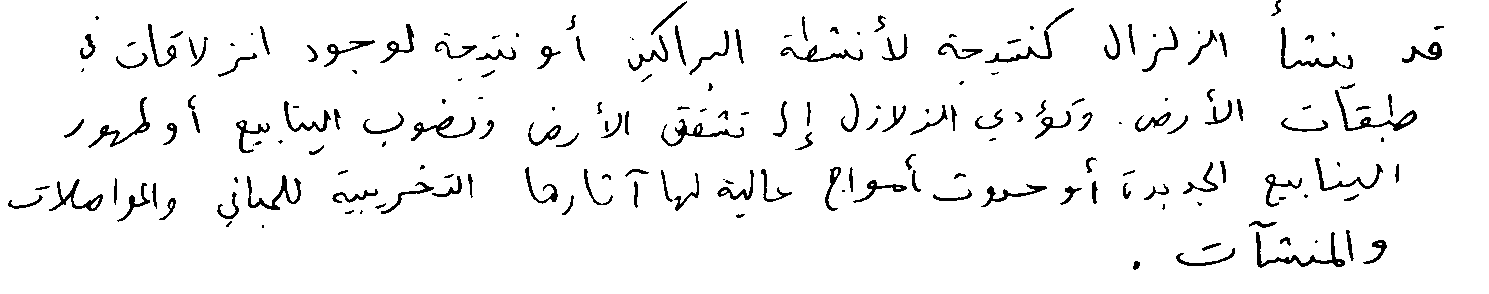 قد ينشأ الزلزال كنتيجة لأنشطة البراكين أو نتيجة لوجود انزلاقات في
طبقات الأرض. وتؤدي الزلازل إلى تشقق الأرض ونضوب الينابيع أو ظهور
الينابيع الجديدة أو حدوث أمواج عالية لها آثارها التخريبية للمباني والمواصلات
والمنشآت .